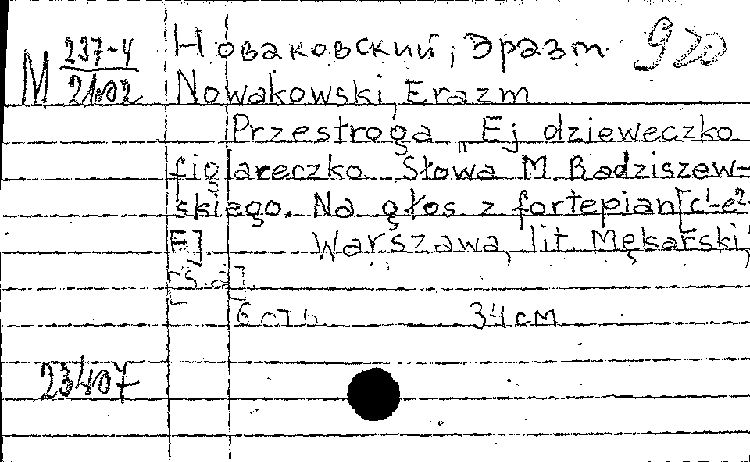 М 237-4/21402 Новаковский, Эразм 920
Nowakowski, Erazm
Przestroga „Ej dzieweczko
figlareczko. Słowa M. Radziszew-
skiego. Na głos z fortepian [c¹-e²-
F]
Warszawa, lit. Mękarski,
[s.a.]
34 см
23407